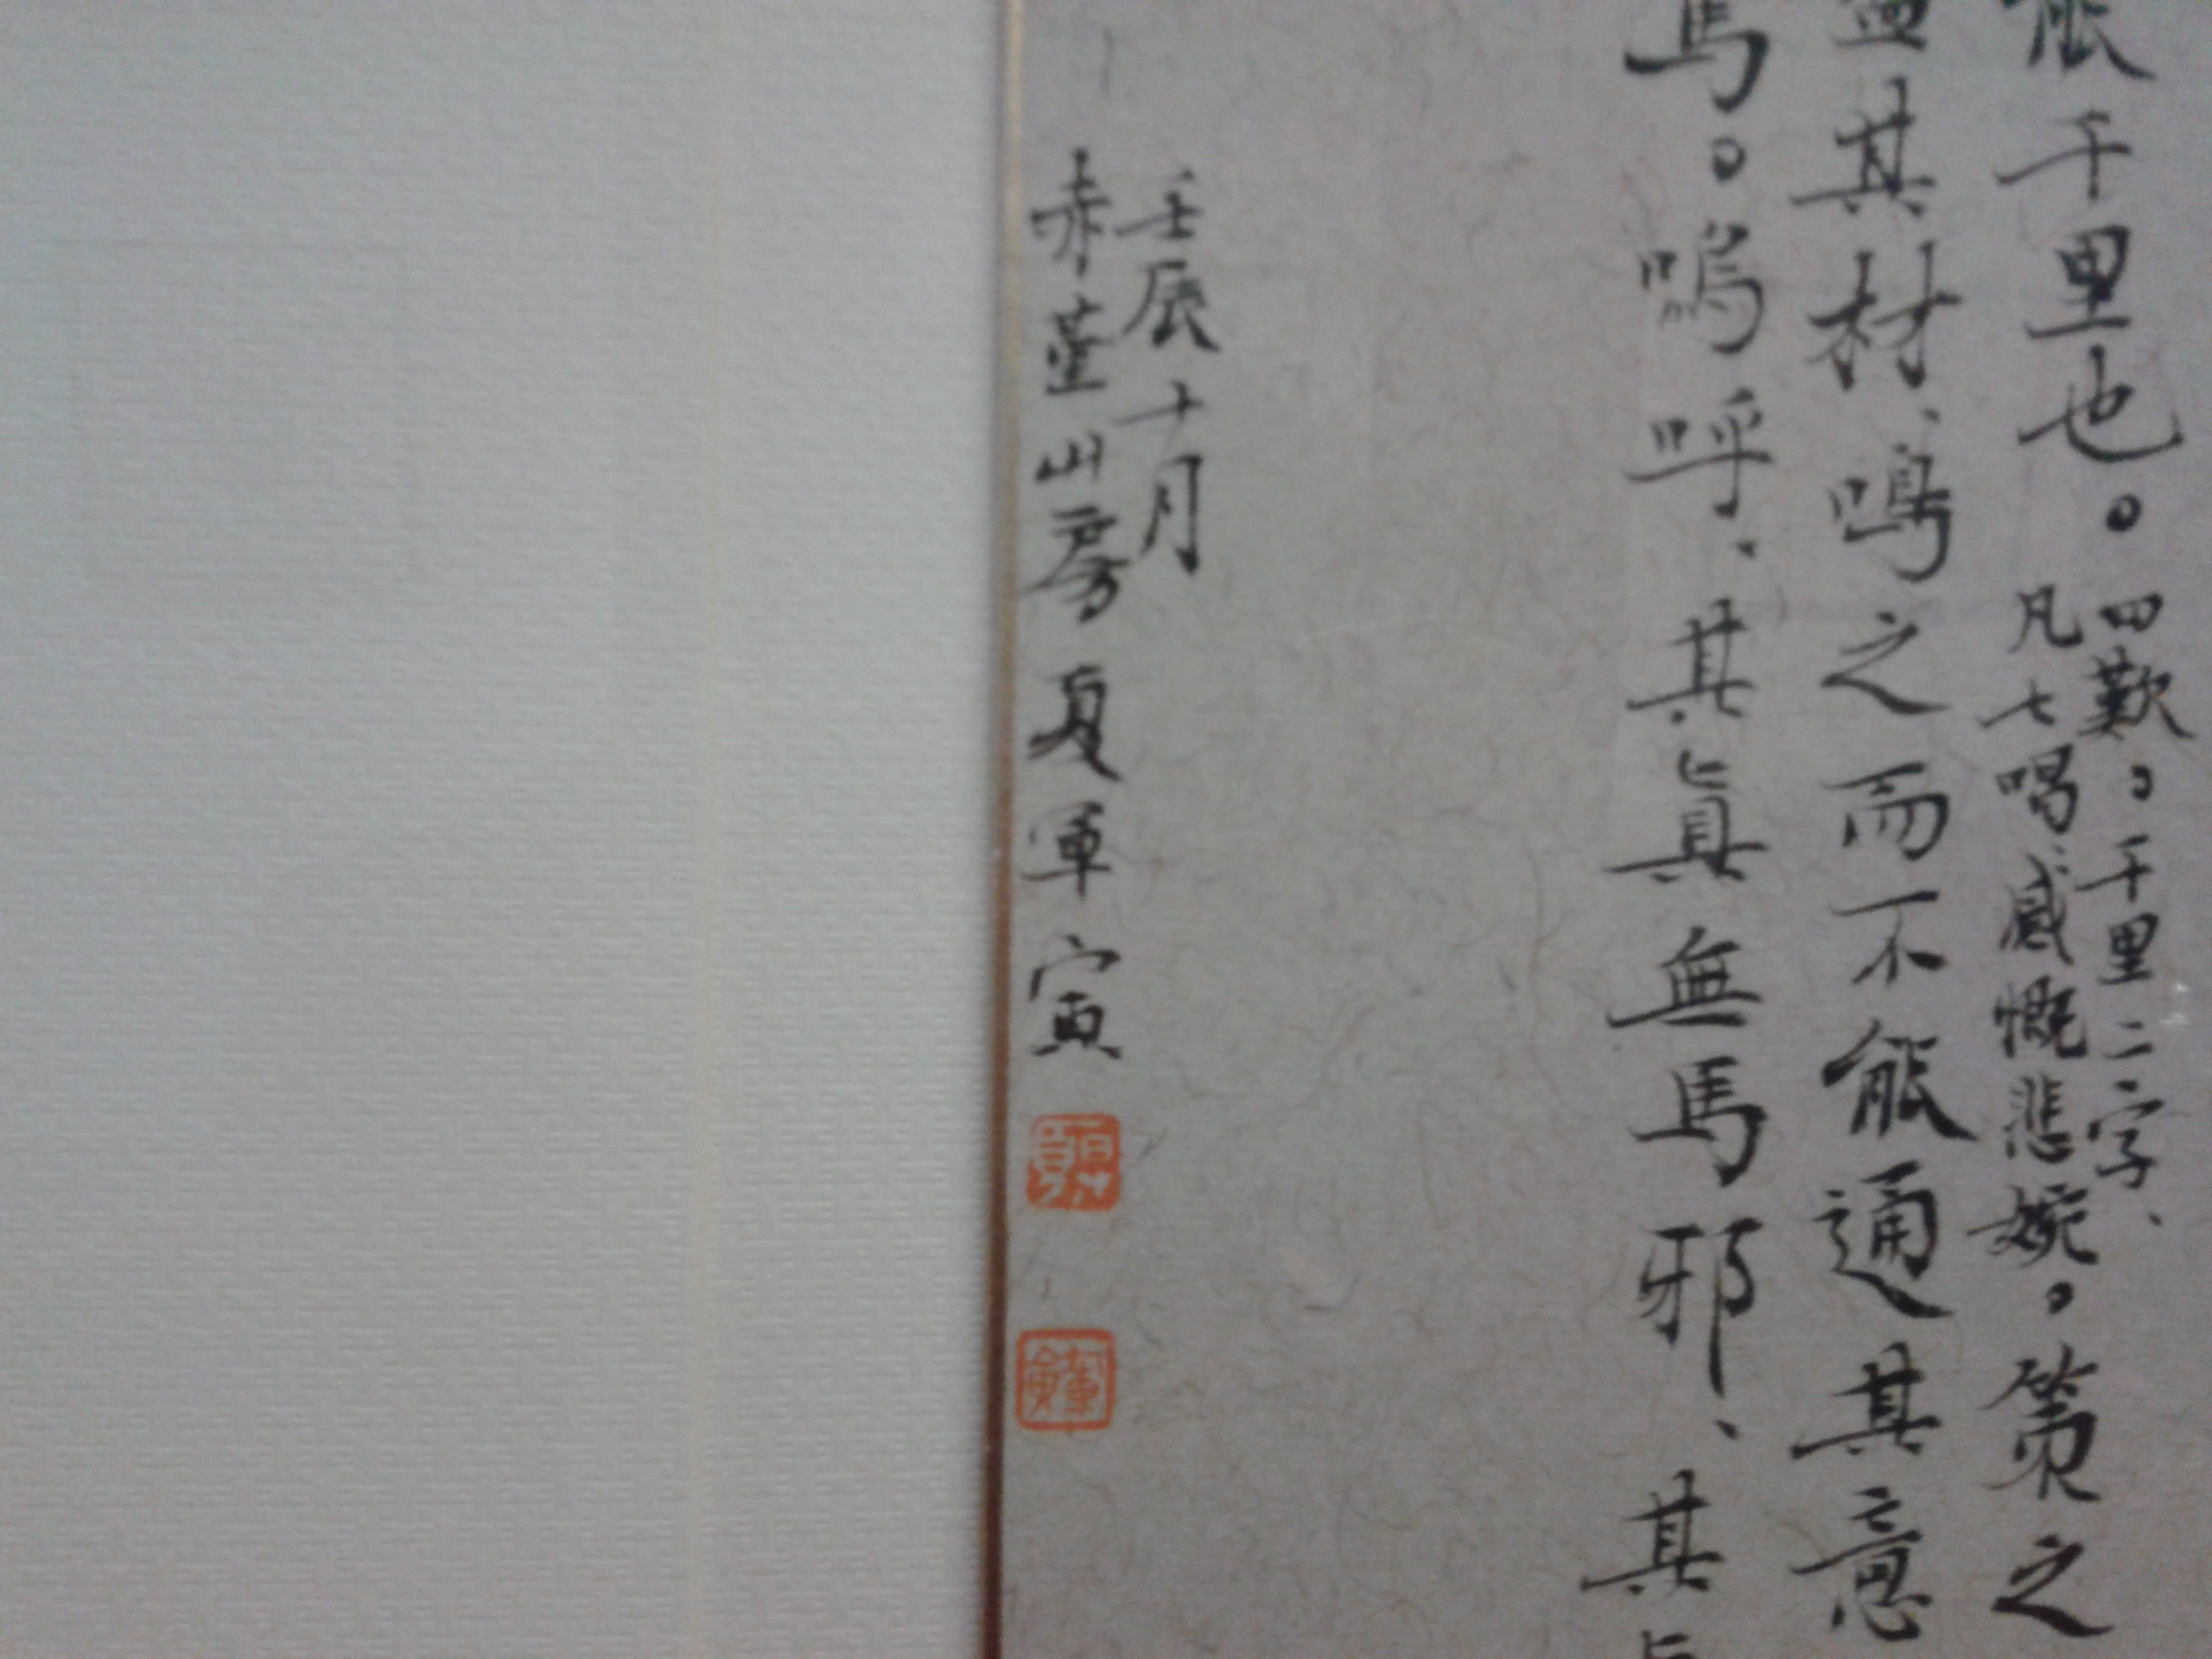 能千里也。
四歎。千里二字、
凡七唱感慨悲婉。
策之
盡其材、鳴之而不能通其意
馬。嗚呼、其真無馬邪、其真
壬辰十月
赤堇山房夏軍寅